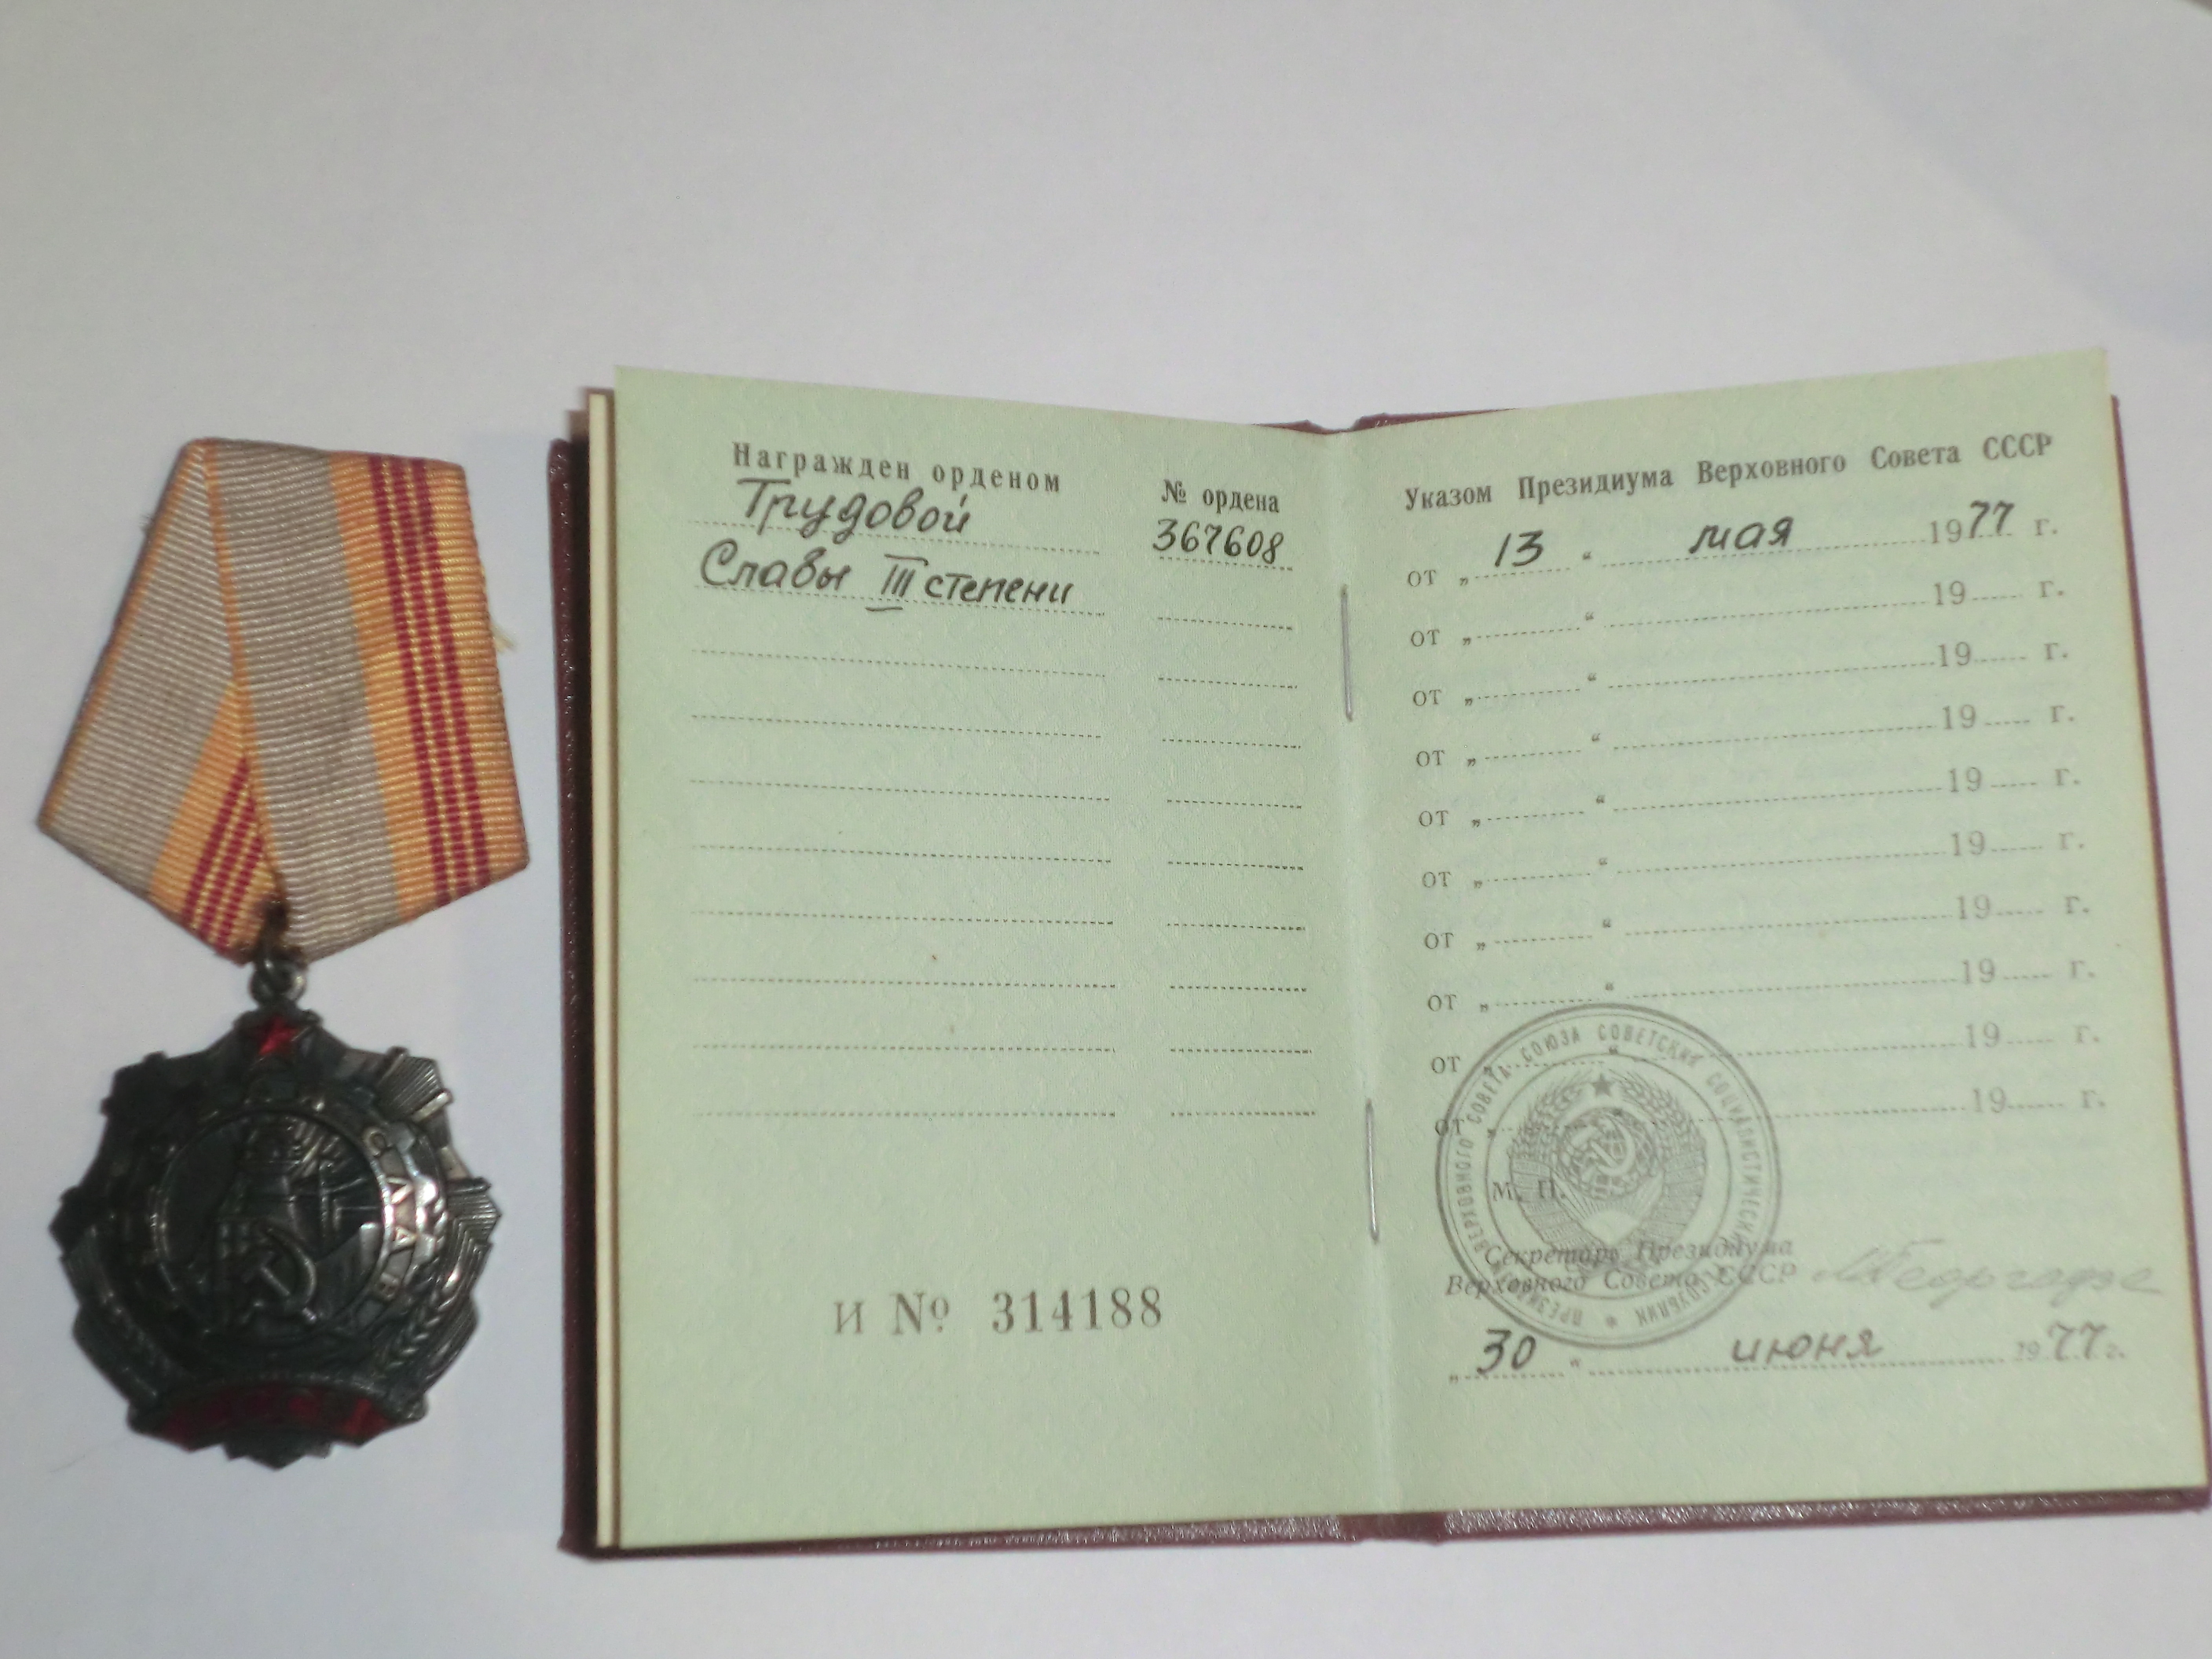 СЛАВА
Награжден орденом
№ ордена
Трудовой
367608
Славы III степени
И № 314188
Указом Президиума Верховного Совета СССР
от „ 13 “ мая 1977 г.
от „ “ 19 г.
от „ “ 19 г.
от „ “ 19 г.
от „ “ 19 г.
от „ “ 19 г.
от „ “ 19 г.
от „ “ 19 г.
от „ “ 19 г.
от „ “ 19 г.
ПРЕЗИДИУМ ВЕРХОВНОГО СОВЕТА СОЮЗА СОВЕТСКИХ СОЦИАЛИСТИЧЕСКИХ РЕСПУБЛИК
М. П.
Секретарь Президиума
Верховного Совета СССР МГеоргадзе
„ 30 “ июня 1977 г.